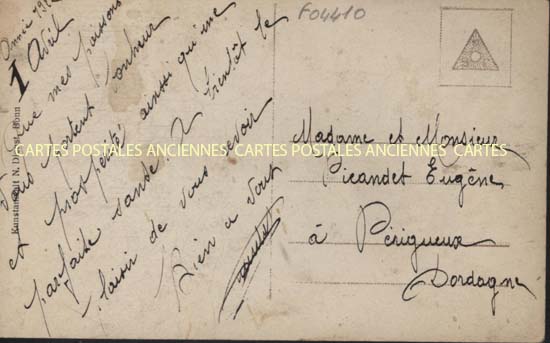 Année 19
1 Avril
Que mes poissons
vous portent bonheur
et prospérité ainsi qu'une
parfaite santé. A bientôt le
plaisir de vous revoir
Bien à vous
F04410
Madame et Monsieur
Picandet Eugène
à Périgueux
Dordogne
Kunstanstalt N. Bonn
CARTES POSTALES ANCIENNES CARTES POSTALES ANCIENNES CARTES POSTALES ANCIENNES